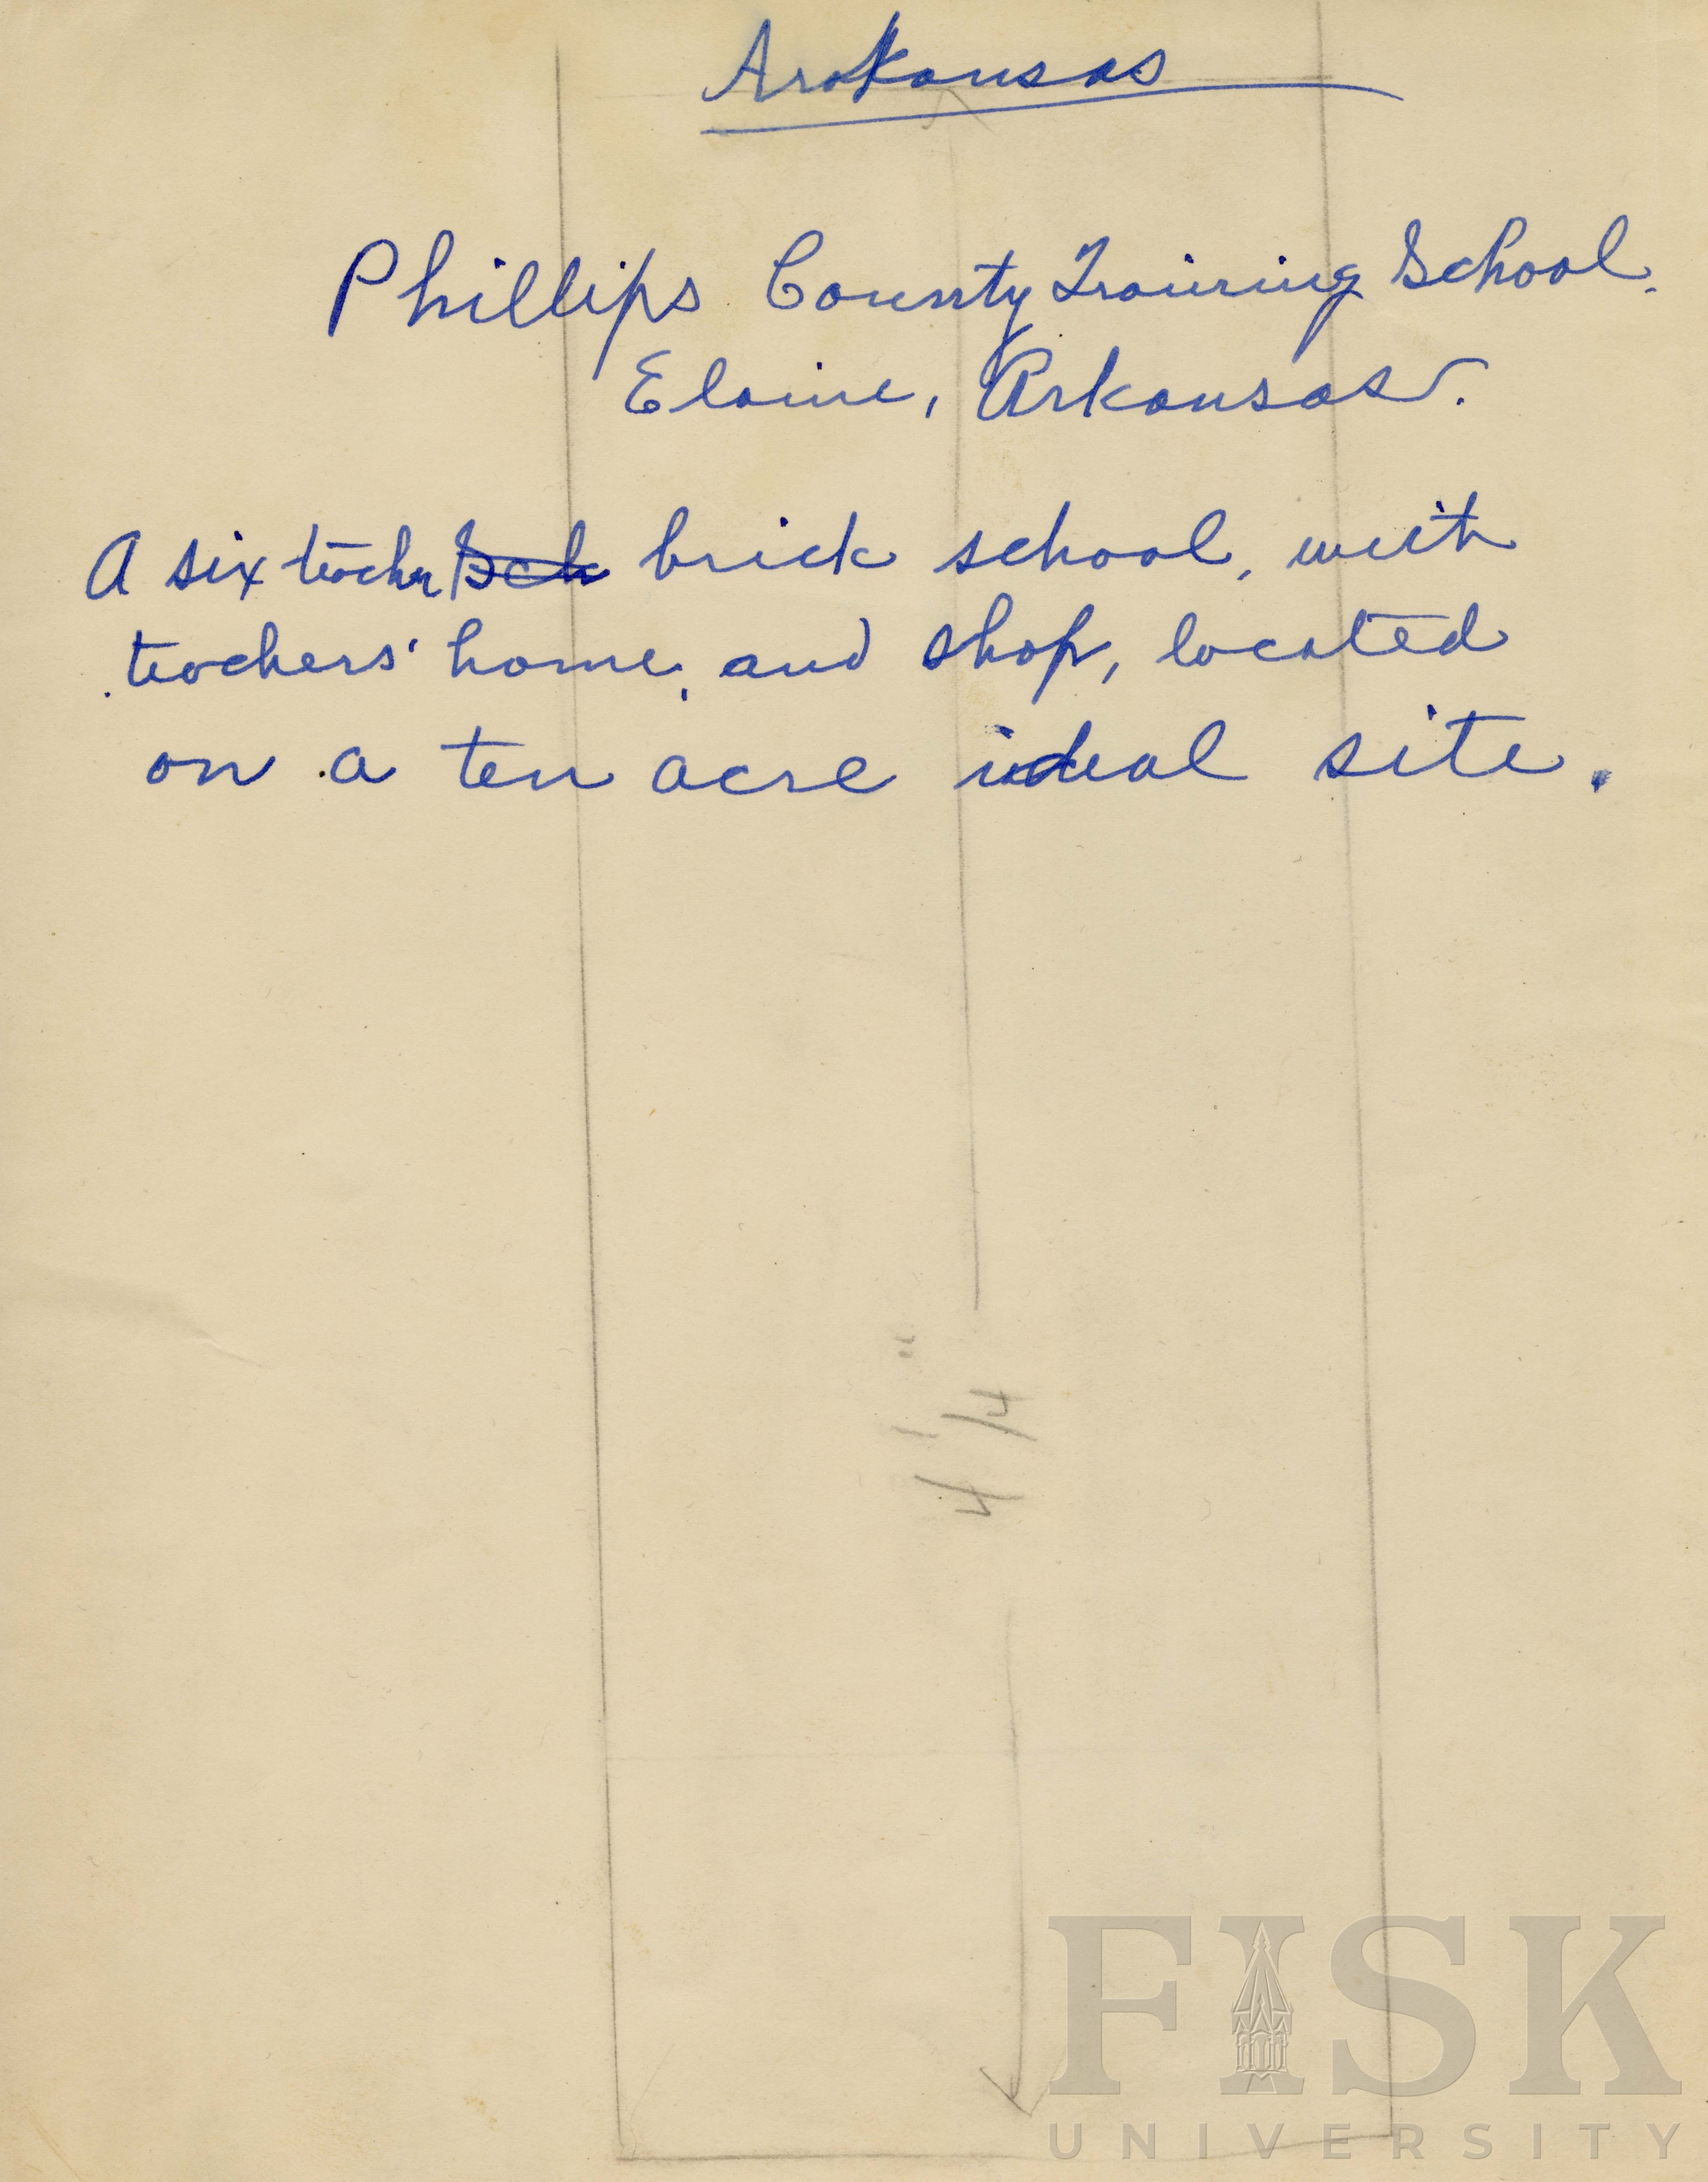 Arokansas
Phillips County Training School.
Elaine, Arkansas.
A six teacher Sch brick school, with
teachers' home, and shop, located
on a ten acre ideal site.
4 1/4"
FISK
UNIVERSITY